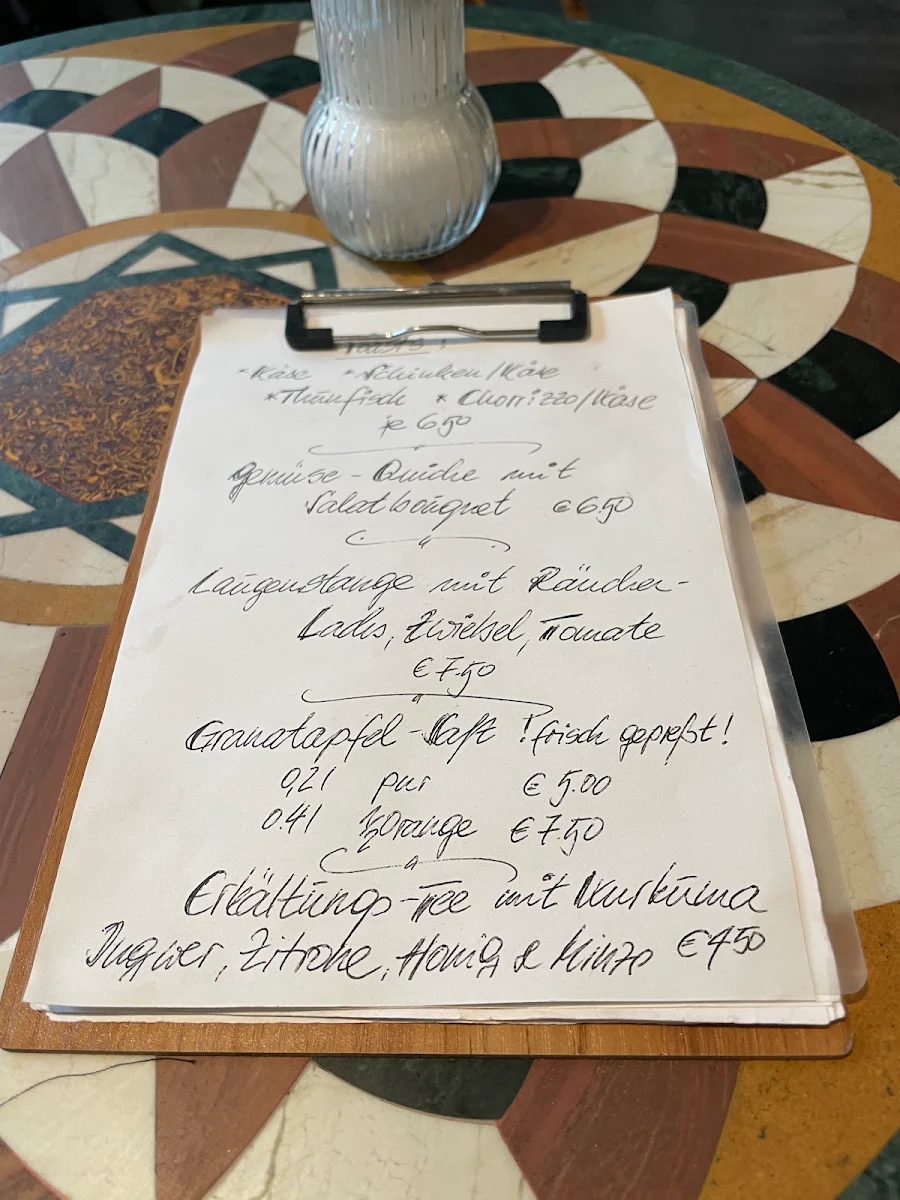 Toasts:
*Käse *Schinken/Käse
*Thunfisch * Chorrizzo/Käse
je 6.50
gemüse-Quiche mit
Salatbouqnet € 6.50
Laugenstange mit Räucher-
Lachs, Zwiebel, Tomate
€ 7.50
Granatapfel-Saft !frisch gepreßt!
0,2l pur € 5.00
0.4l Orange € 7.50
Erkältungs-Tee mit Kurkuma
Ingwer, Zitrone, Honig & Minze €4.50